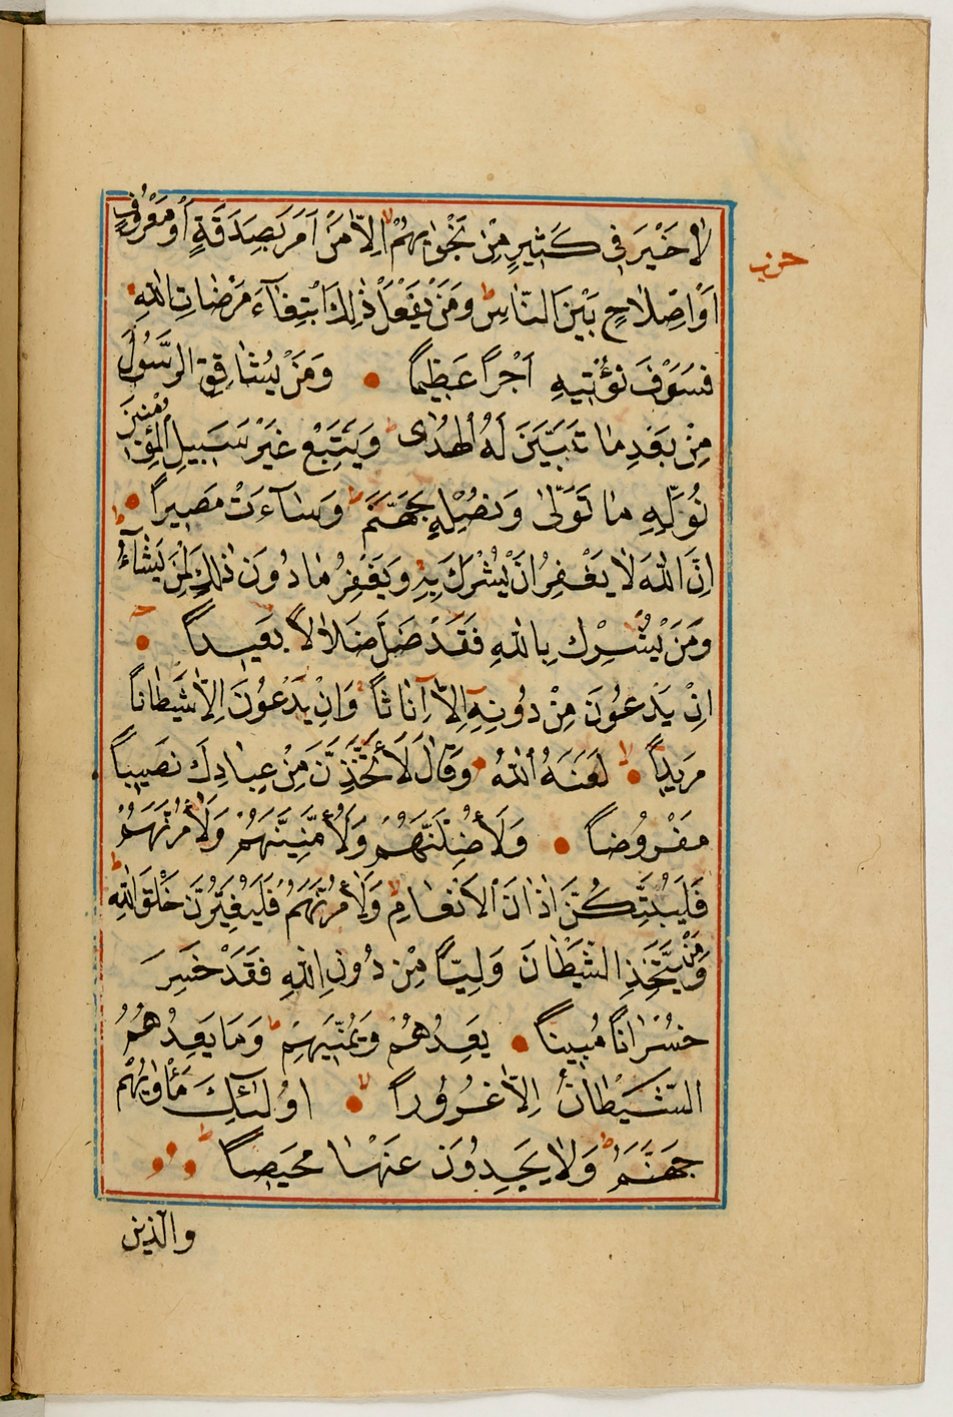 لَا خَيْرَ فِي كَثِيرٍ مِنْ نَجْوٰيهُمْ اِلَّا مَنْ اَمَرَ بِصَدَقَةٍ اَوْ مَعْرُوفٍ
حزب
اَوْ اِصْلَاحٍ بَيْنَ النَّاسِ وَمَنْ يَفْعَلْ ذٰلِكَ ابْتِغَآءَ مَرْضَاتِ اللّٰهِ
فَسَوْفَ نُؤْتِيهِ اَجْرًا عَظِيمًا وَمَنْ يُشَاقِقِ الرَّسُولَ
مِنْ بَعْدِ مَا تَبَيَّنَ لَهُ الْهُدٰى وَيَتَّبِعْ غَيْرَ سَبِيلِ الْمُؤْمِنِينَ
نُوَلِّهِ مَا تَوَلّٰى وَنُصْلِهِ جَهَنَّمَ وَسَآءَتْ مَصِيرًا
اِنَّ اللّٰهَ لَا يَغْفِرُ اَنْ يُشْرَكَ بِهِ وَيَغْفِرُ مَا دُونَ ذٰلِكَ لِمَنْ يَشَآءُ
وَمَنْ يُشْرِكْ بِاللّٰهِ فَقَدْ ضَلَّ ضَلَالًا بَعِيدًا
اِنْ يَدْعُونَ مِنْ دُونِهِ اِلَّا اِنَاثًا وَاِنْ يَدْعُونَ اِلَّا شَيْطَانًا
مَرِيدًا لَعَنَهُ اللّٰهُ وَقَالَ لَأَتَّخِذَنَّ مِنْ عِبَادِكَ نَصِيبًا
مَفْرُوضًا وَلَأُضِلَّنَّهُمْ وَلَأُمَنِّيَنَّهُمْ وَلَأٰمُرَنَّهُمْ
فَلَيُبَتِّكُنَّ اٰذَانَ الْاَنْعَامِ وَلَأٰمُرَنَّهُمْ فَلَيُغَيِّرُنَّ خَلْقَ اللّٰهِ
وَمَنْ يَتَّخِذِ الشَّيْطَانَ وَلِيًّا مِنْ دُونِ اللّٰهِ فَقَدْ خَسِرَ
خُسْرَانًا مُبِينًا يَعِدُهُمْ وَيُمَنِّيهِمْ وَمَا يَعِدُهُمُ
الشَّيْطَانُ اِلَّا غُرُورًا اُولٰئِكَ مَأْوٰيهُمْ
جَهَنَّمُ وَلَا يَجِدُونَ عَنْهَا مَحِيصًا
والذين